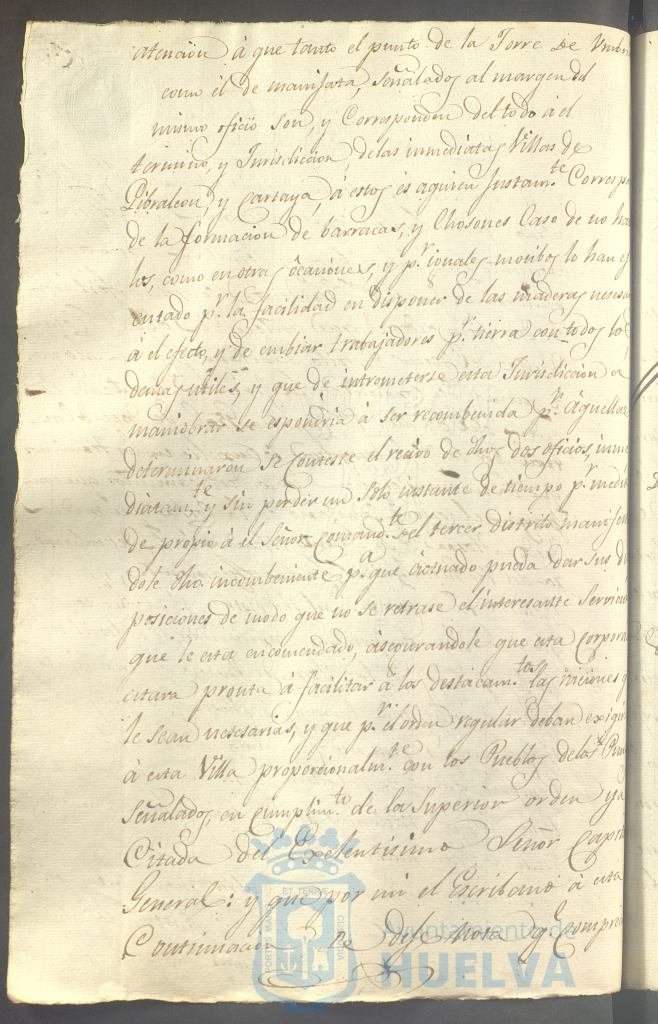 atencion à que tanto el punto de la Torre de Umbri
como él de manijata, señalados al margen del
mismo oficio son, y Corresponden del todo à el
termino, y Jurisdiccion, delas inmediatas Villas de
Gibraleon, y Cartaya, à estos és aquien Justam.te Correspon
de la formacion de barracas, y Chosones Caso de no ha
los, como en otras ócaciones, y p.r iguales motibos lo han ej
cutado p.r la facilidad en disponer de las maderas nesesa
à el efecto, y de embiar trabajadores p.r tierra con todos lo
demas útiles, y que de intrometerse esta Jurisdiccion a
maniobrar se espondria à ser recombenida p.r àquellas
determinaron se Conteste el recivo de dhos dos oficios, inme
diatam.te y sin perder un solo instante de tiempo p.r medio
de propio à el Señor Comand.te del tercer distrito manifes
dole dho. incombeniente p.a que àctuado pueda dar sus di
posiciones de modo que no se retrase el interesante Servicio
que le esta encomendado, àsegurandole que esta Corpora
estara pronta à facilitar à los destacam.tos las raciones q
le sean nesesarias, y que p.r el orden regular deban exigir
à esta Villa proporcionalm.te con los Pueblos delas Pun
señalados, en Cumplim.to de la Superior orden ya
Citada del Exelentisimo Señor Capi
General: y que por mi el Escribano à esta
Continuacion se deje Nota q. Compre
PORTUS MARIS ET TERRE CUSTODIA
Ayuntamiento de
HUELVA